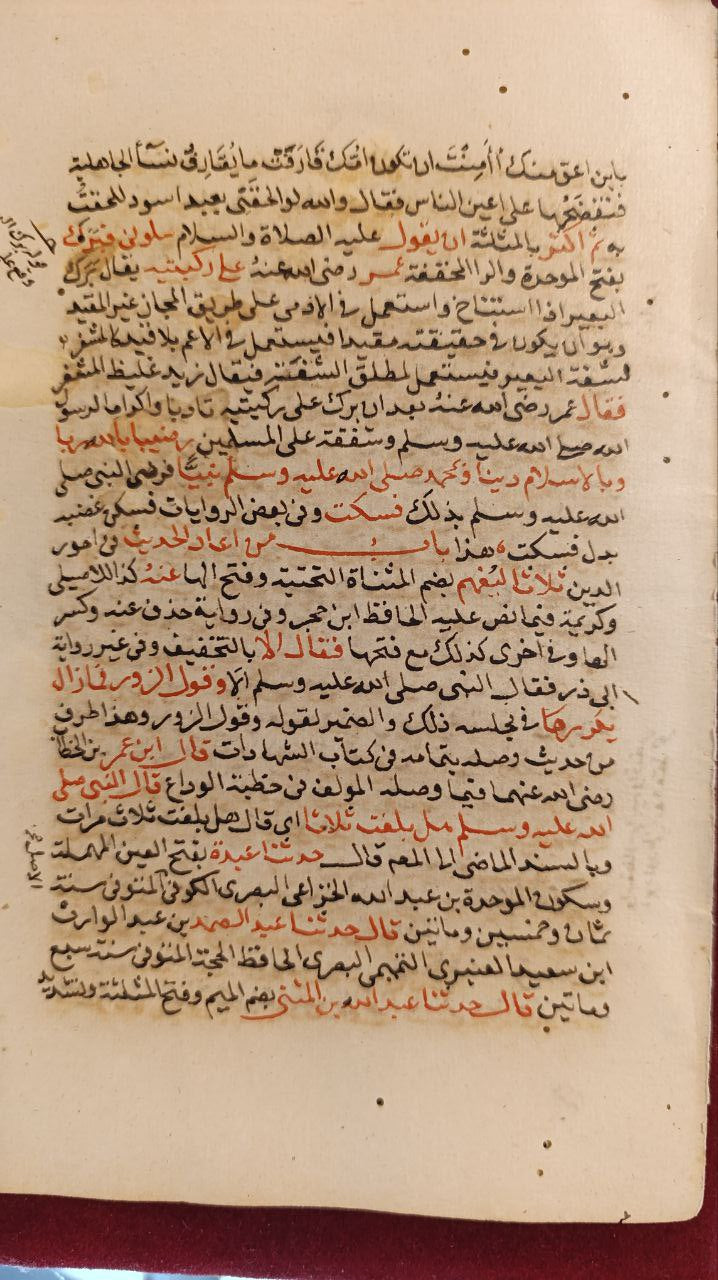 بابن اعق منك أأمِنْتَ ان تكون امّك قارَفَتْ ما يُقَارِفُ نسآ الجاهلية
فتفضحها على اعين الناس فقال والله لو الحقني بعبد اسود للحقتُ
به ثم اكثر بالمثلثة ان يقول عليه الصلاة والسلام سلوني فبرك
بفتح الموحدة والرا المخففة عمر رضي الله عنه على ركبتيه يقال برك
البعير اذا استناخ واستعمل في الادمى على طريق المجاز غير المقيد
وهو ان يكون في حقيقته مقيدا فيستعمل في الاعم بلا قيد كالمشفر
لشفة البعير فيستعمل لمطلق الشفة فيقال زيد غليظ المشفر
فقال عمر رضى الله عنه بعد ان برك على ركبتيه تادبا واكراما لرسول
الله صلى الله عليه وسلم وشفقة على المسلمين رضينا بالله ربا
وبالاسلام دينا وبمحمد صلى الله عليه وسلم نبيًّا فرضى النبي صلى
الله عليه وسلم بذلك فسكت وفى بعض الروايات فسكن غضبه
بدل فسكت هذا باب من اعاد الحديث في امور
الدين ثلاثا ليُفهم بضم المثناة التحتية وفتح الها عنه كذا للاصيلى
وكريمة فيما نص عليه الحافظ ابن حجر وفى رواية حذف عنه وكسر
الها وفي اخرى كذلك مع فتحها فقال الا بالتخفيف وفى غير رواية
ابى ذر فقال النبى صلى الله عليه وسلم الا وقول الزور فما زال
يكررها في مجلسه ذلك والضمير لقوله وقول الزور وهذا طرف
من حديث وصله بتمامه فى كتاب الشهادات قال ابن عمر بن الخطاب
رضى الله عنهما فيما وصله المولف فى خطبة الوداع قال النبي صلى
الله عليه وسلم هل بلغت ثلاثا اي قال هل بلغت ثلاث مرات
وبالسند الماضى الى المص قال حدثنا عبدة بفتح العين المهملة
وسكون الموحدة بن عبد الله الخزاعى البصرى الكوفى المتوفى سنة
ثمان وخمسين ومائتين قال حدثنا عبد الصمد بن عبد الوارث
ابن سعيد العنبري التميمى البصرى الحافظ الحجة المتوفى سنة سبع
ومائتين قال حدثنا عبد الله بن المثنى بضم الميم وفتح المثلثة وتشديد